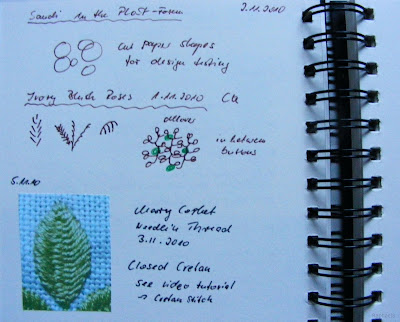 Sandi in the PLOST-Forum 2.11.2010
Cut paper shapes
for design testing
Ivory Blush Roses 1.11.2010 CQ
allover
in between
buttons
5.11.10
Mary Corbet
Needle'n Thread
3.11.2010
Closed Cretan
see video tutorial
→ Cretan Stitch